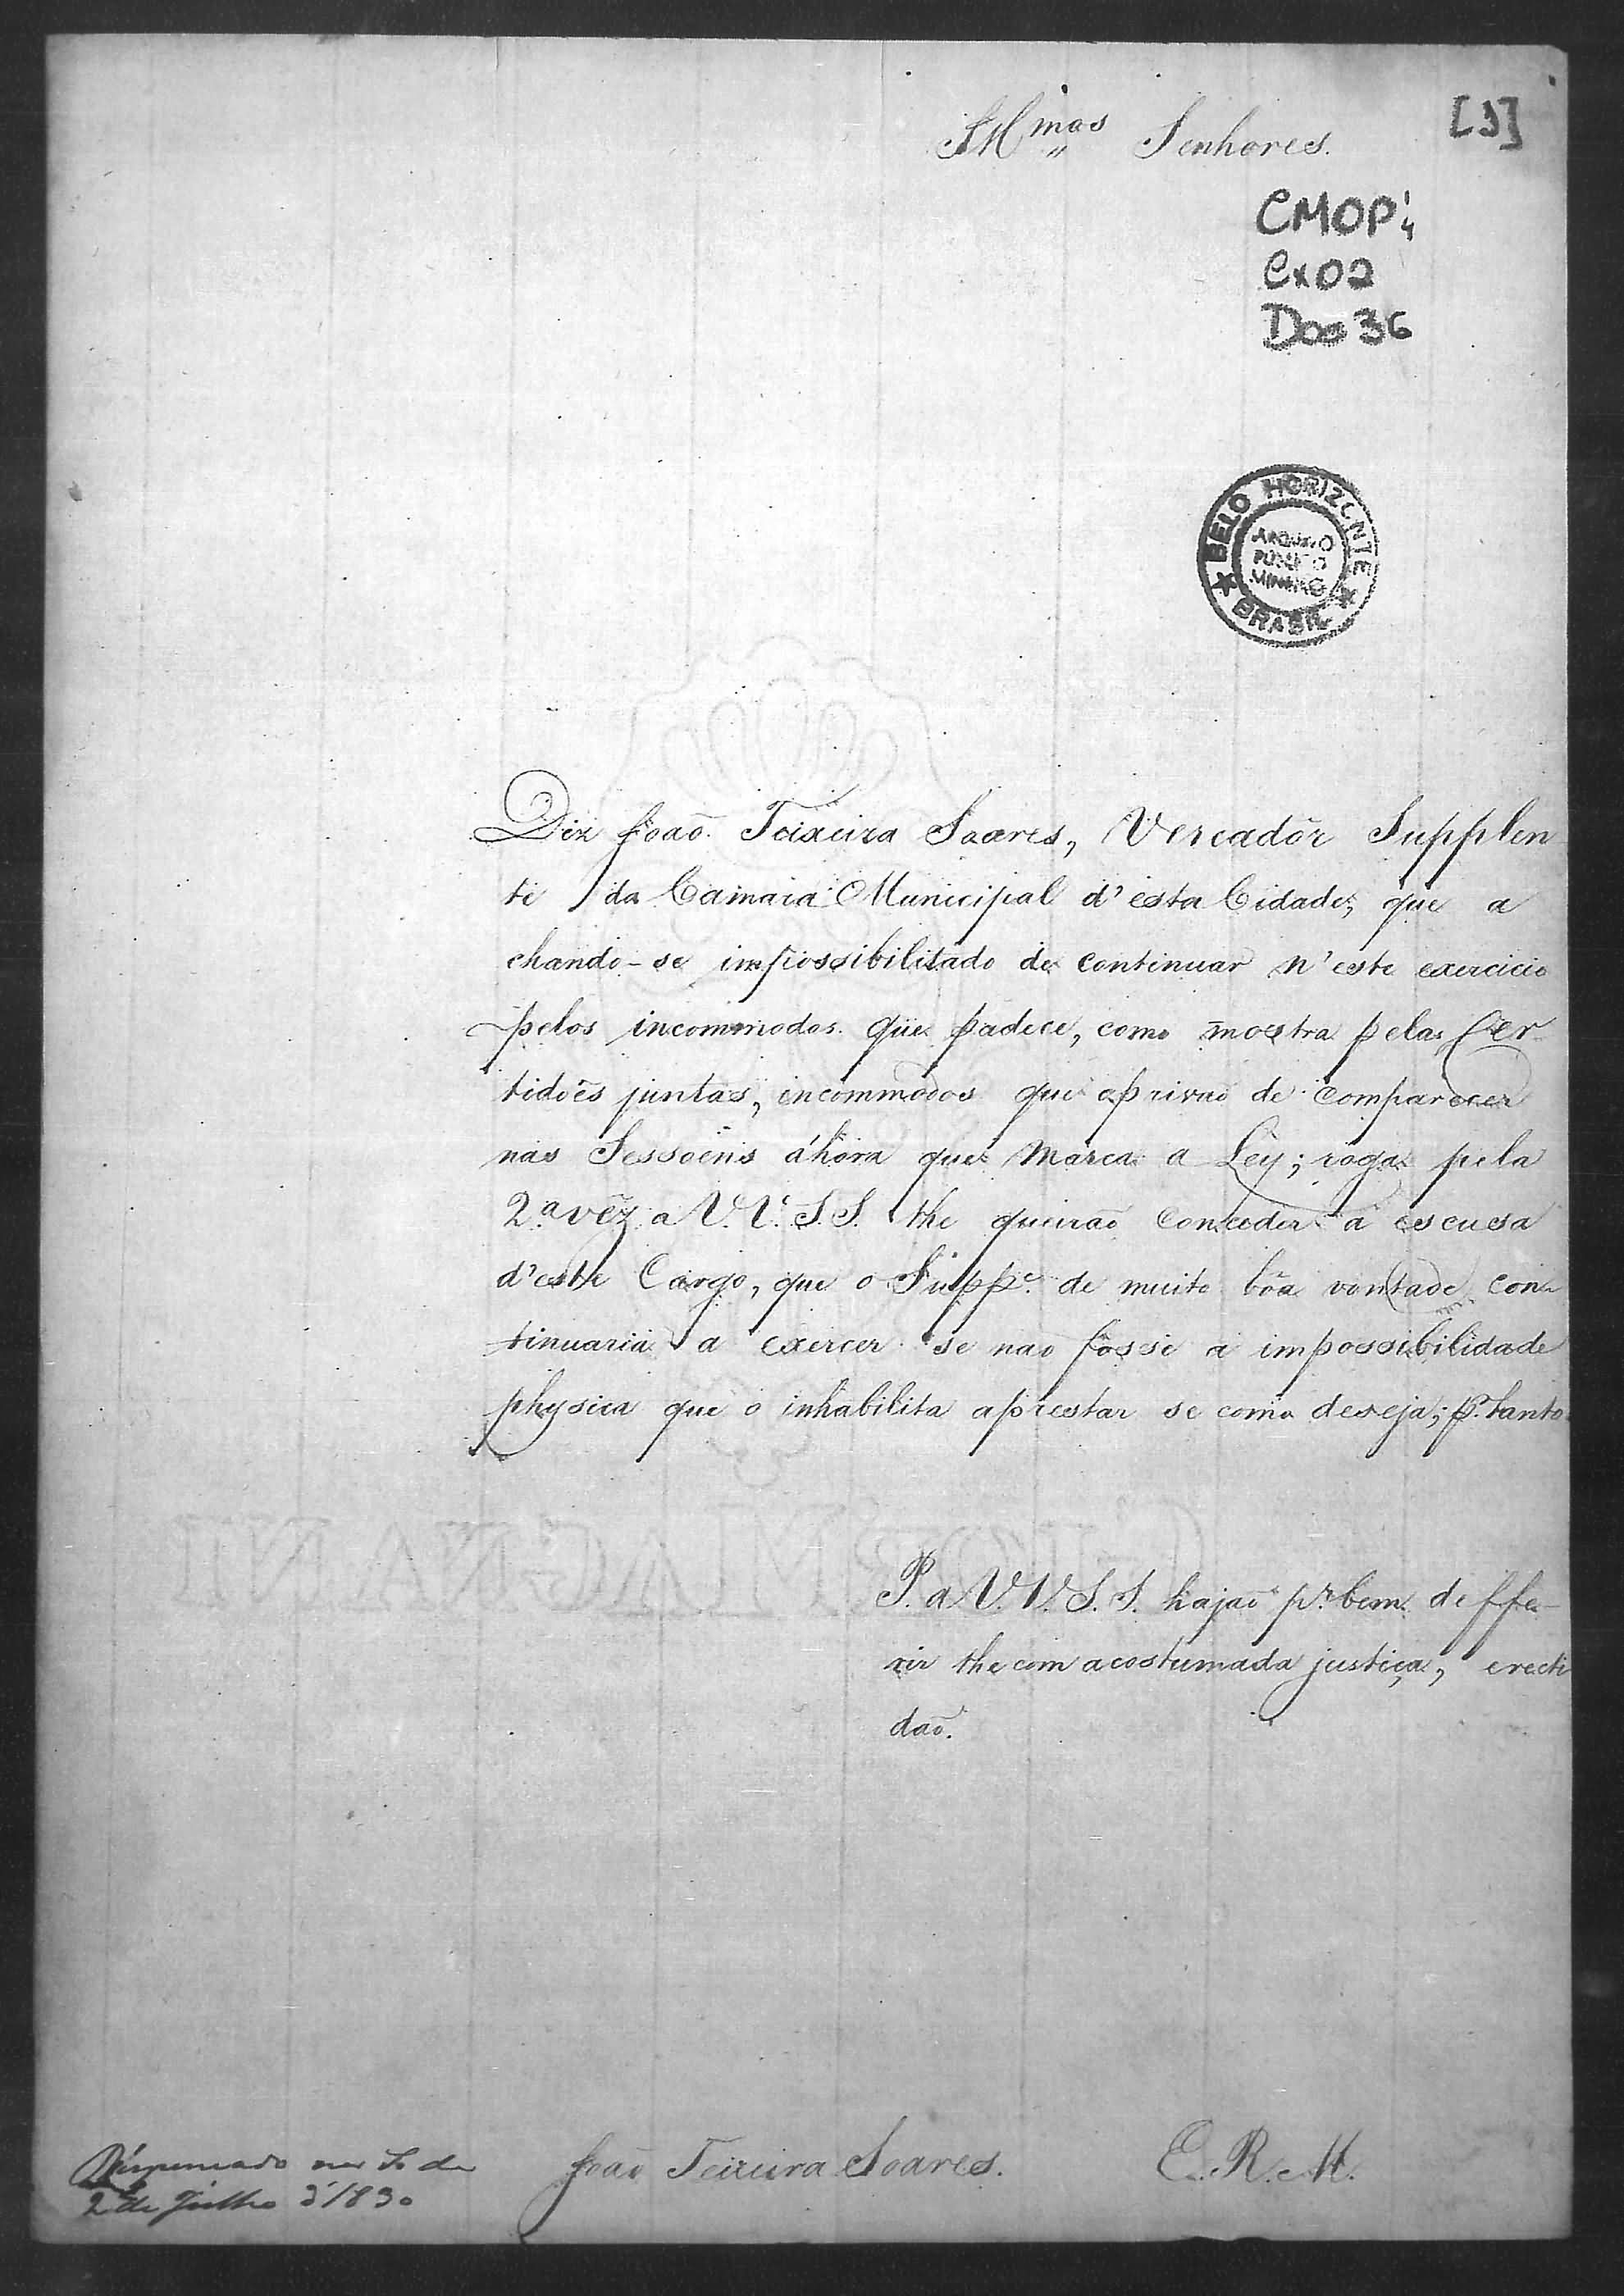 Illmos Senhores.
[1]
CMOP
Cx02
Doc 36
BELO HORIZONTE
ARQUIVO
PUBLICO
MINEIRO
BRASIL
Diz João Teixeira Soares, Vereadôr Supplen
te da Camara Municipal d'esta Cidade, que a
chando-se impossibilitado de continuar n'este exercicio
pelos incommodos que padece, como mostra pelas Cer-
tidoẽs juntas, incommodos que oprivaõ de comparecer
nas Sessoens áhora que marca a Ley; roga pela
2.ª vêz a V.V. S.S. lhe queiraõ Conceder a escusa
d'este Cargo, que o Supp.e de muito bôa vontade con-
tinuaria a exercer se naõ fôsse a impossibilidade
physica que o inhabilita aprestar se como deseja; p.r tanto
P. a V.V. S.S. hajaõ p.r bem deffe-
rir lhe com acostumada justiça, erecti
daõ.
João Teixeira Soares.
E. R. M.
Dispensado em S. de
2 de Julho d'1830